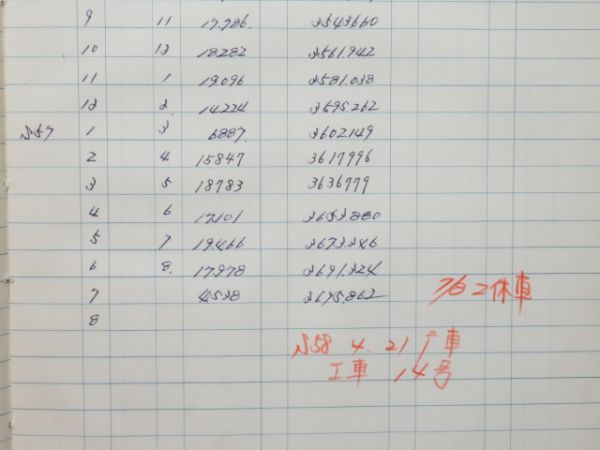 9 11 17,986 2543660
10 12 18282 2561.942
11 1 19,096 2581.038
12 2 14224 2595.262
S57 1 3 6887 2602149
2 4 15847 3617996
3 5 18783 3636779
4 6 17,101 2653.880
5 7 19466 2673246
6 8 17,978 2691,224
7 4538 2695.862
7/6 ニ休車
8
S58. 4. 21 車
工車 14号